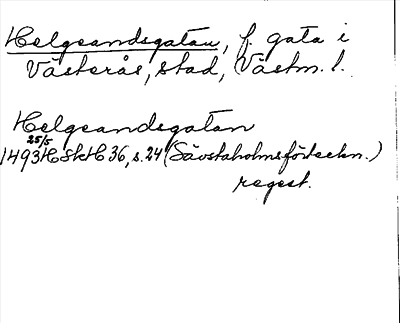 Helgeandsgatan, f. gata i
Västerås, stad, Västm. l.
Helgeandsgatan
1493 25/5 HSkH 36, s. 24 (Sävstaholmsförteckn.)
regest.